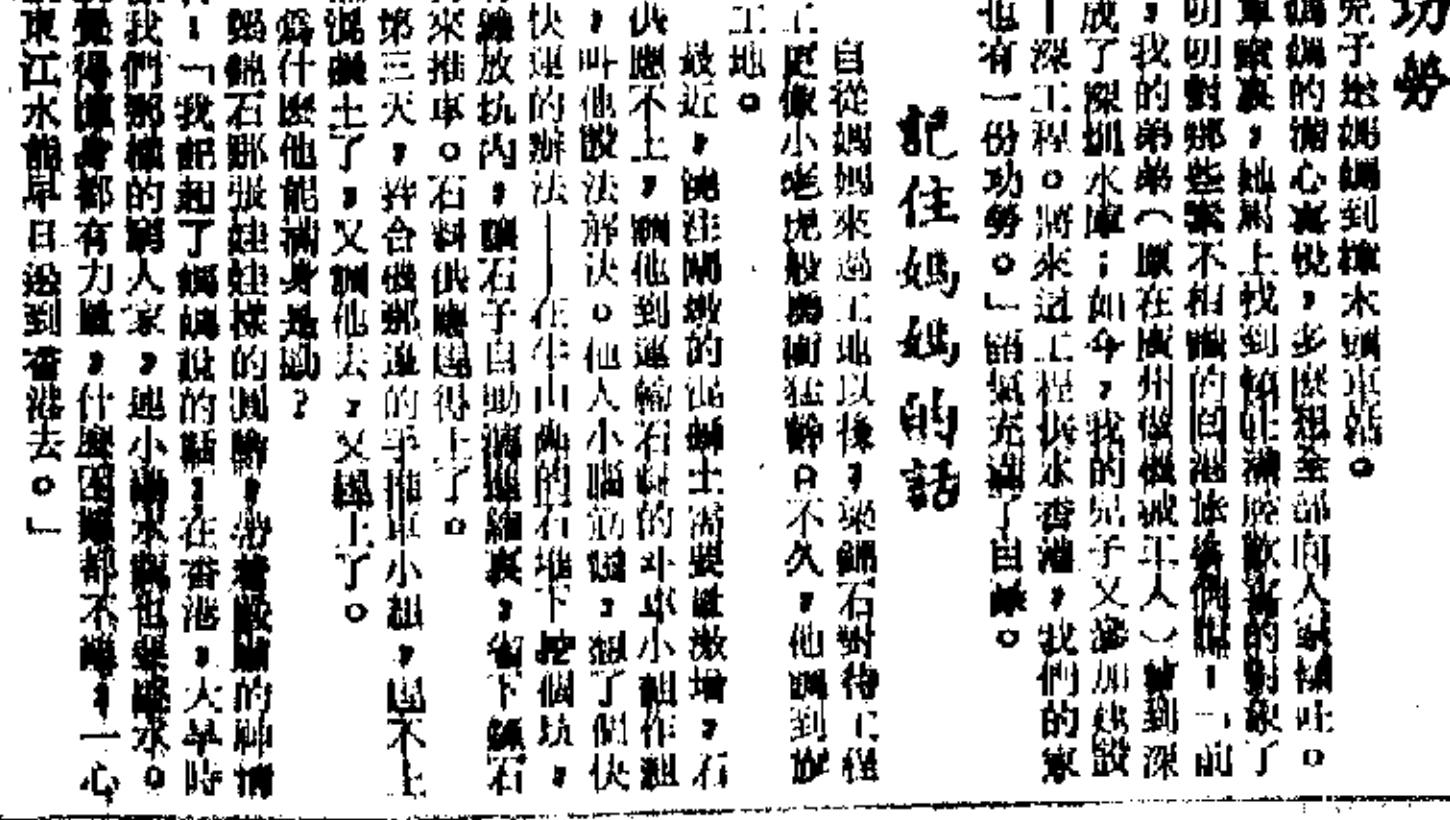 功勞
兒子送媽媽到樟木頭車站。
媽媽的滿心喜悅,多麼想全部向人家傾吐。
車廂裏,她馬上找到
明明對那些素不相識的回港旅客們說:「前
,我的弟弟(原在廣州做機械工人)曾到深
成了深圳水庫;如今,我的兒子又參加建設
—深工程。將來這工程供水香港,我們的家
也有一份功勞。」語氣充滿了自豪。
記住媽媽的話
自從媽媽來過工地以後,梁錦石對待工程
工更像小老虎般勇猛幹。不久,他調到
工地。
最近,澆注閘墩的混凝土需要量激增,石
供應不上,調他到運輸石料的斗車小組作組
,叫他設法解決。他人小腦筋靈,想了個快
快運的辦法——在半山的石堆下挖個坑,
放坑內,讓石子自動滿進裏,省下錦石
來推車。石料供應趕得上了。
第三天,拌合機那邊的手推車小組,趕不上
混凝土了,又調他去,又趕上了。
爲什麼他能滿身是勁?
錦石那張娃娃樣的圓臉,帶着嚴肅的神情
:「我記起了媽媽說的話,在香港,大旱時
我們那樣的窮人家,連小水也水。
覺得渾身都有力量,什麼困難都不,一心
東江水能早日送到香港去。」